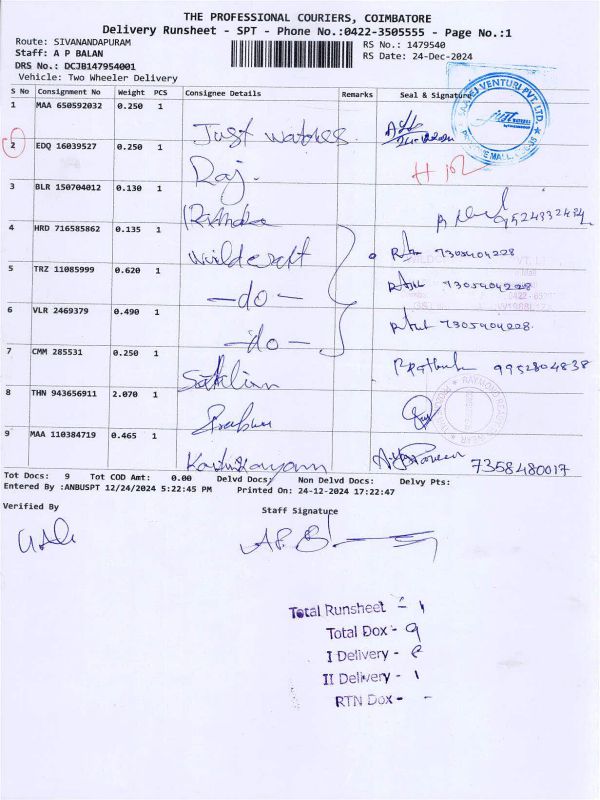 THE PROFESSIONAL COURIERS, COIMBATORE
Delivery Runsheet - SPT - Phone No.:0422-3505555 - Page No.:1
Route: SIVANANDAPURAM
RS No.: 1479540
Staff: A P BALAN
RS Date: 24-Dec-2024
DRS No.: DCJB147954001
Vehicle: Two Wheeler Delivery
S No Consignment No Weight PCS Consignee Details Remarks Seal & Signature
1 MAA 650592032 0.250 1 Just watches
2 EDQ 16039527 0.250 1 Raj. H 102
3 BLR 150704012 0.130 1 9524332434
4 HRD 716585862 0.135 1 wildcraft 7305404228
5 TRZ 11085999 0.620 1 -do- 7305404228
6 VLR 2469379 0.490 1 -do- 7305404228.
7 CMM 285531 0.250 1 9952804838
8 THN 943656911 2.070 1 Prabhu
9 MAA 110384719 0.465 1 7358480017
Tot Docs: 9 Tot COD Amt: 0.00 Delvd Docs: Non Delvd Docs: Delvy Pts:
Entered By :ANBUSPT 12/24/2024 5:22:45 PM Printed On: 24-12-2024 17:22:47
Verified By
Staff Signature
Total Runsheet - 1
Total Dox - 9
I Delivery - 8
II Delivery - 1
RTN Dox - -